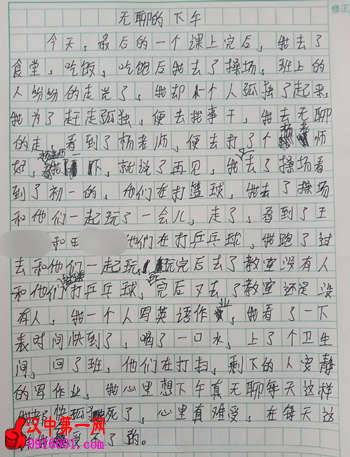 无聊的下午
今天，最后的一个课上完后，我去了
食堂，吃饭，吃饱后我去了操场，班上的
人纷纷的走完了，我却一个人孤独了起来，
我为了赶走孤独，便去找事干，我去无聊
的走，看到了杨老师，便去打了个 师
好， ，就说了再见，我去了操场看
到了初一的，他们在打篮球，我去了操场
和他们一起玩了一会儿，走了，看到了王
和田 他们在打乒乓球，我跑了过
去和他们一起玩 玩完后去了教室没有人
和他们打乒乓球，完后又去了教室还是没
有人，我一个人写英语作业，我看了一下
表时间快到了，喝了一口水，上了个卫生
间，回了班，他们在打扫，剩下的人安静
的写作业，我心里想下午真无聊每天这样
死了，心里真难受，在每天这
了的。
汉中第一网
0916001.com